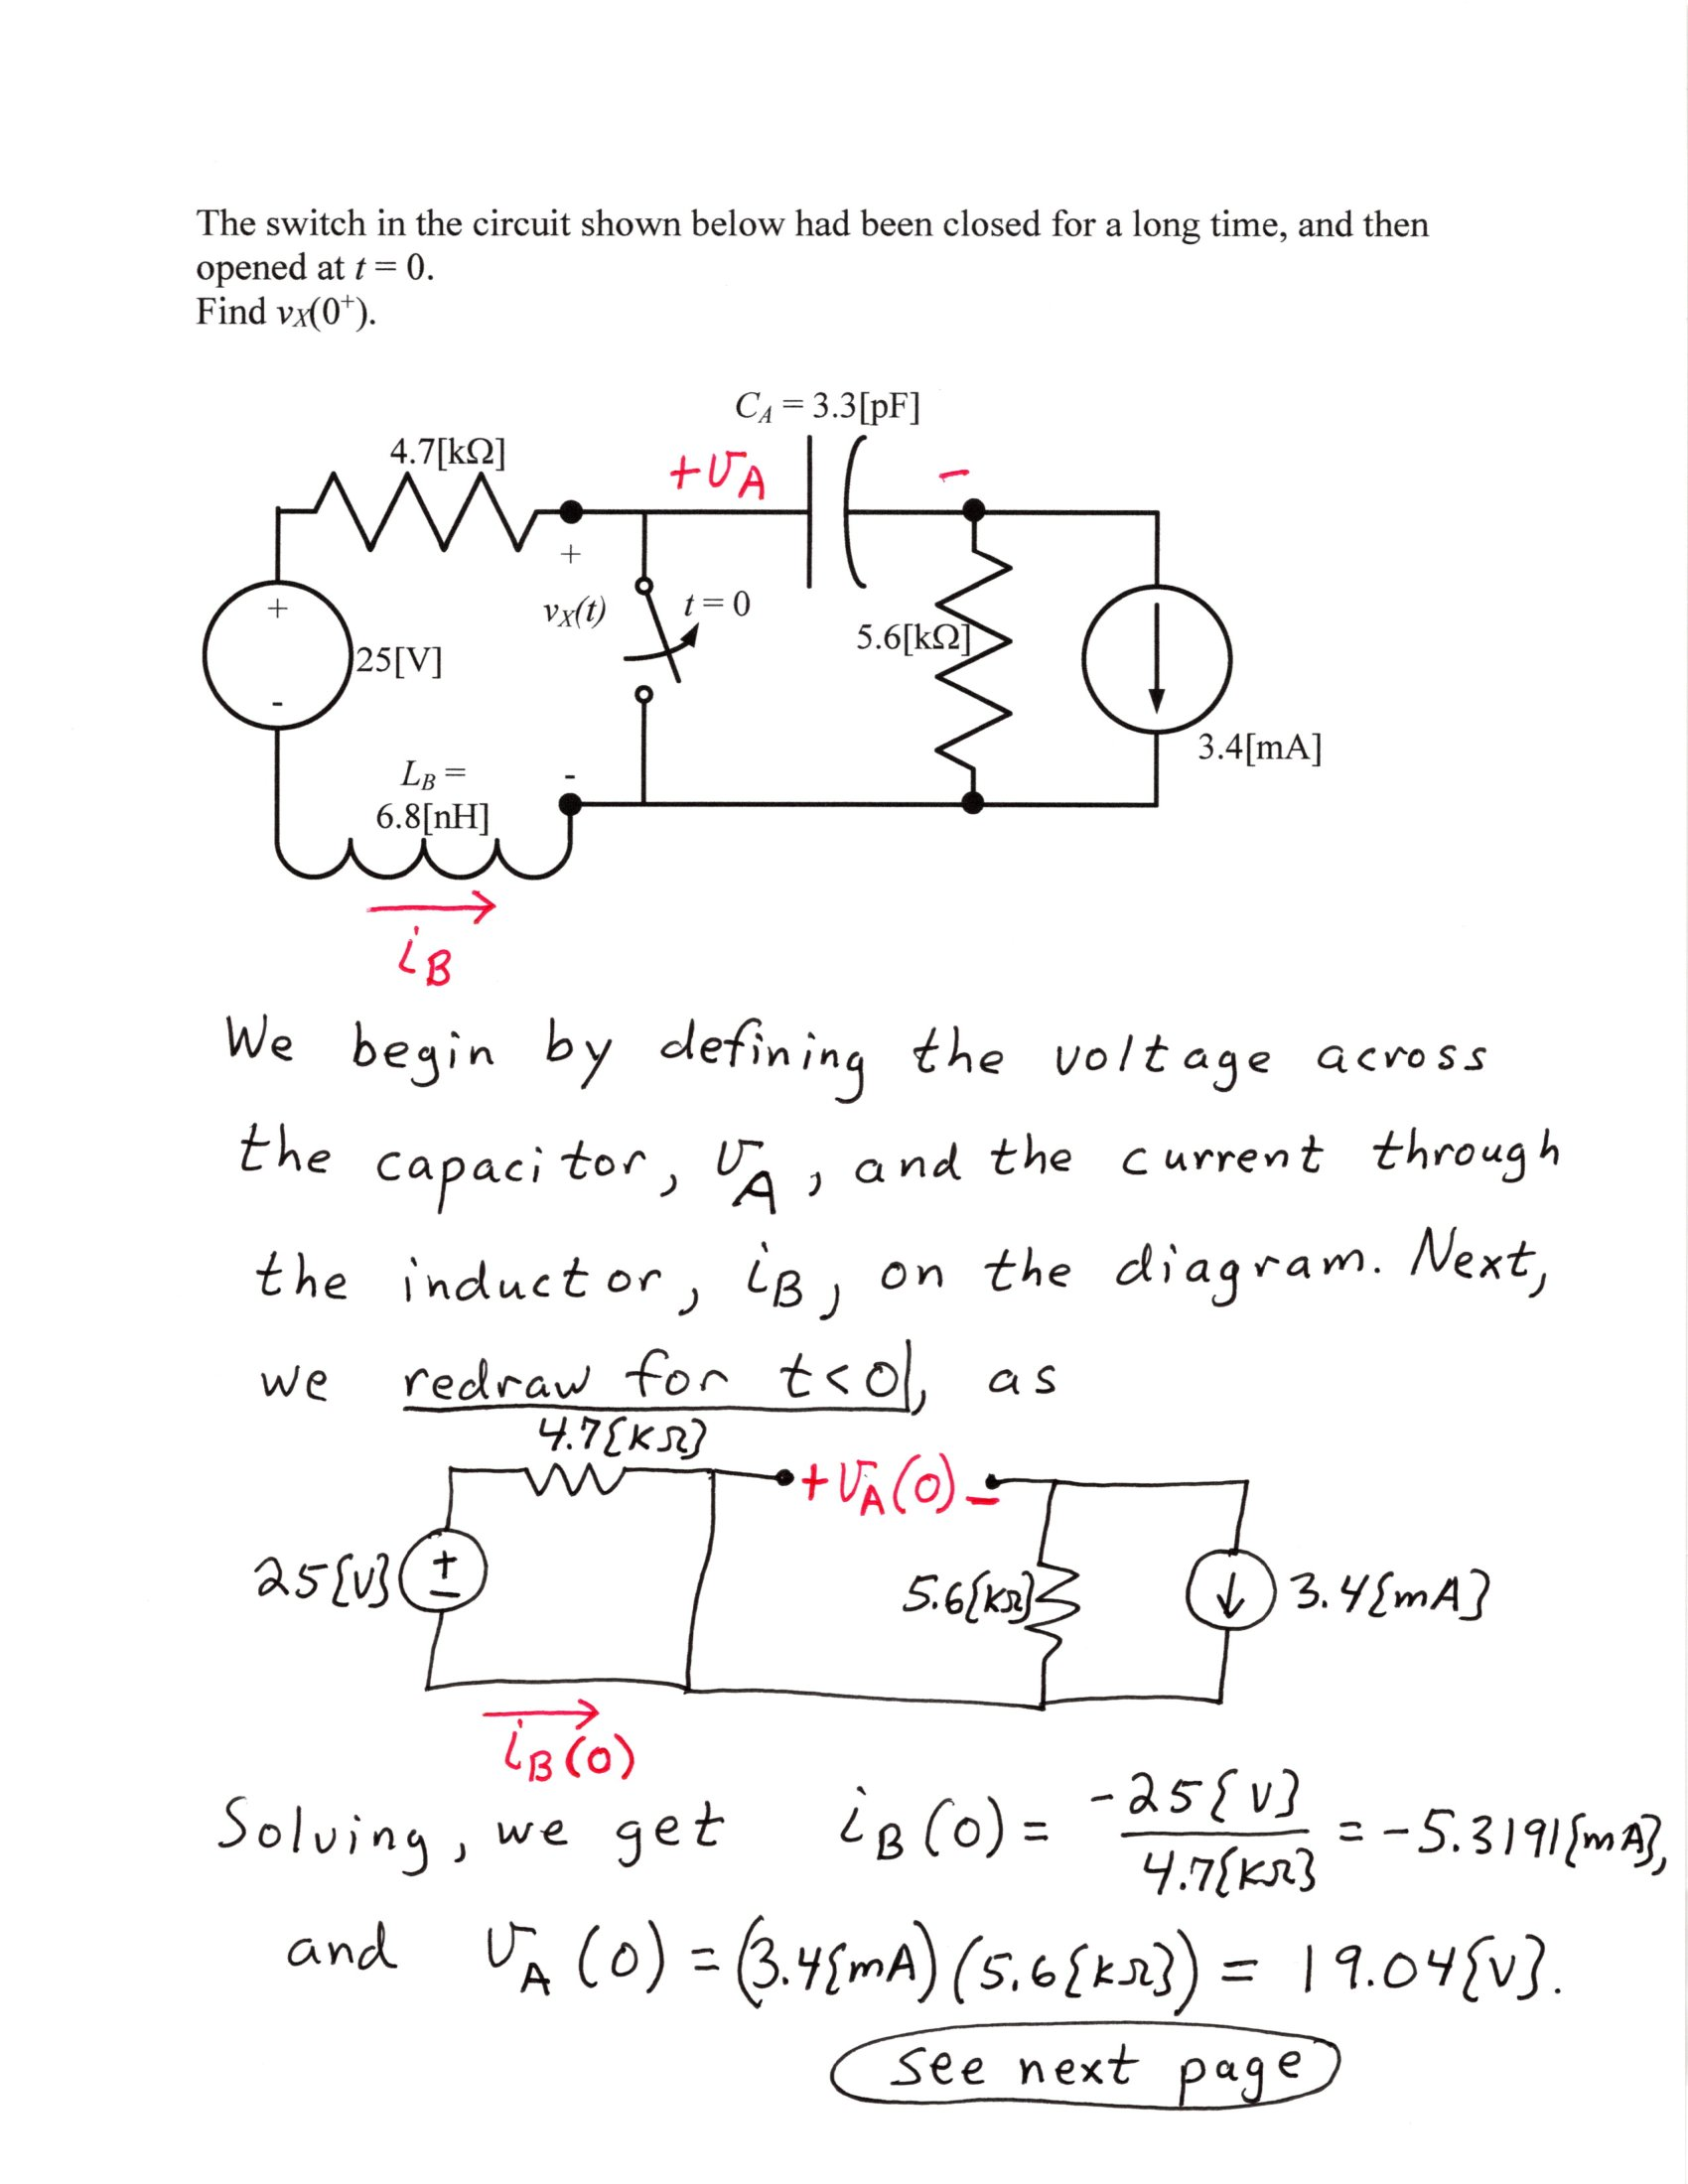 The switch in the circuit shown below had been closed for a long time, and then
opened at t = 0.
Find vX(0+).
CA = 3.3[pF]
4.7[kΩ]
+vA -
+
vX(t)
t = 0
+
25[V]
-
5.6[kΩ]
3.4[mA]
LB =
6.8[nH]
-
iB
We begin by defining the voltage across
the capacitor, vA, and the current through
the inductor, iB, on the diagram. Next,
we redraw for t<0, as
4.7[kΩ]
+vA(0)-
25[V]
+
-
5.6[kΩ]
3.4[mA]
iB(0)
Solving, we get iB(0) = -25[V] / 4.7[kΩ] = -5.3191[mA],
and vA(0) = (3.4[mA])(5.6[kΩ]) = 19.04[V].
see next page